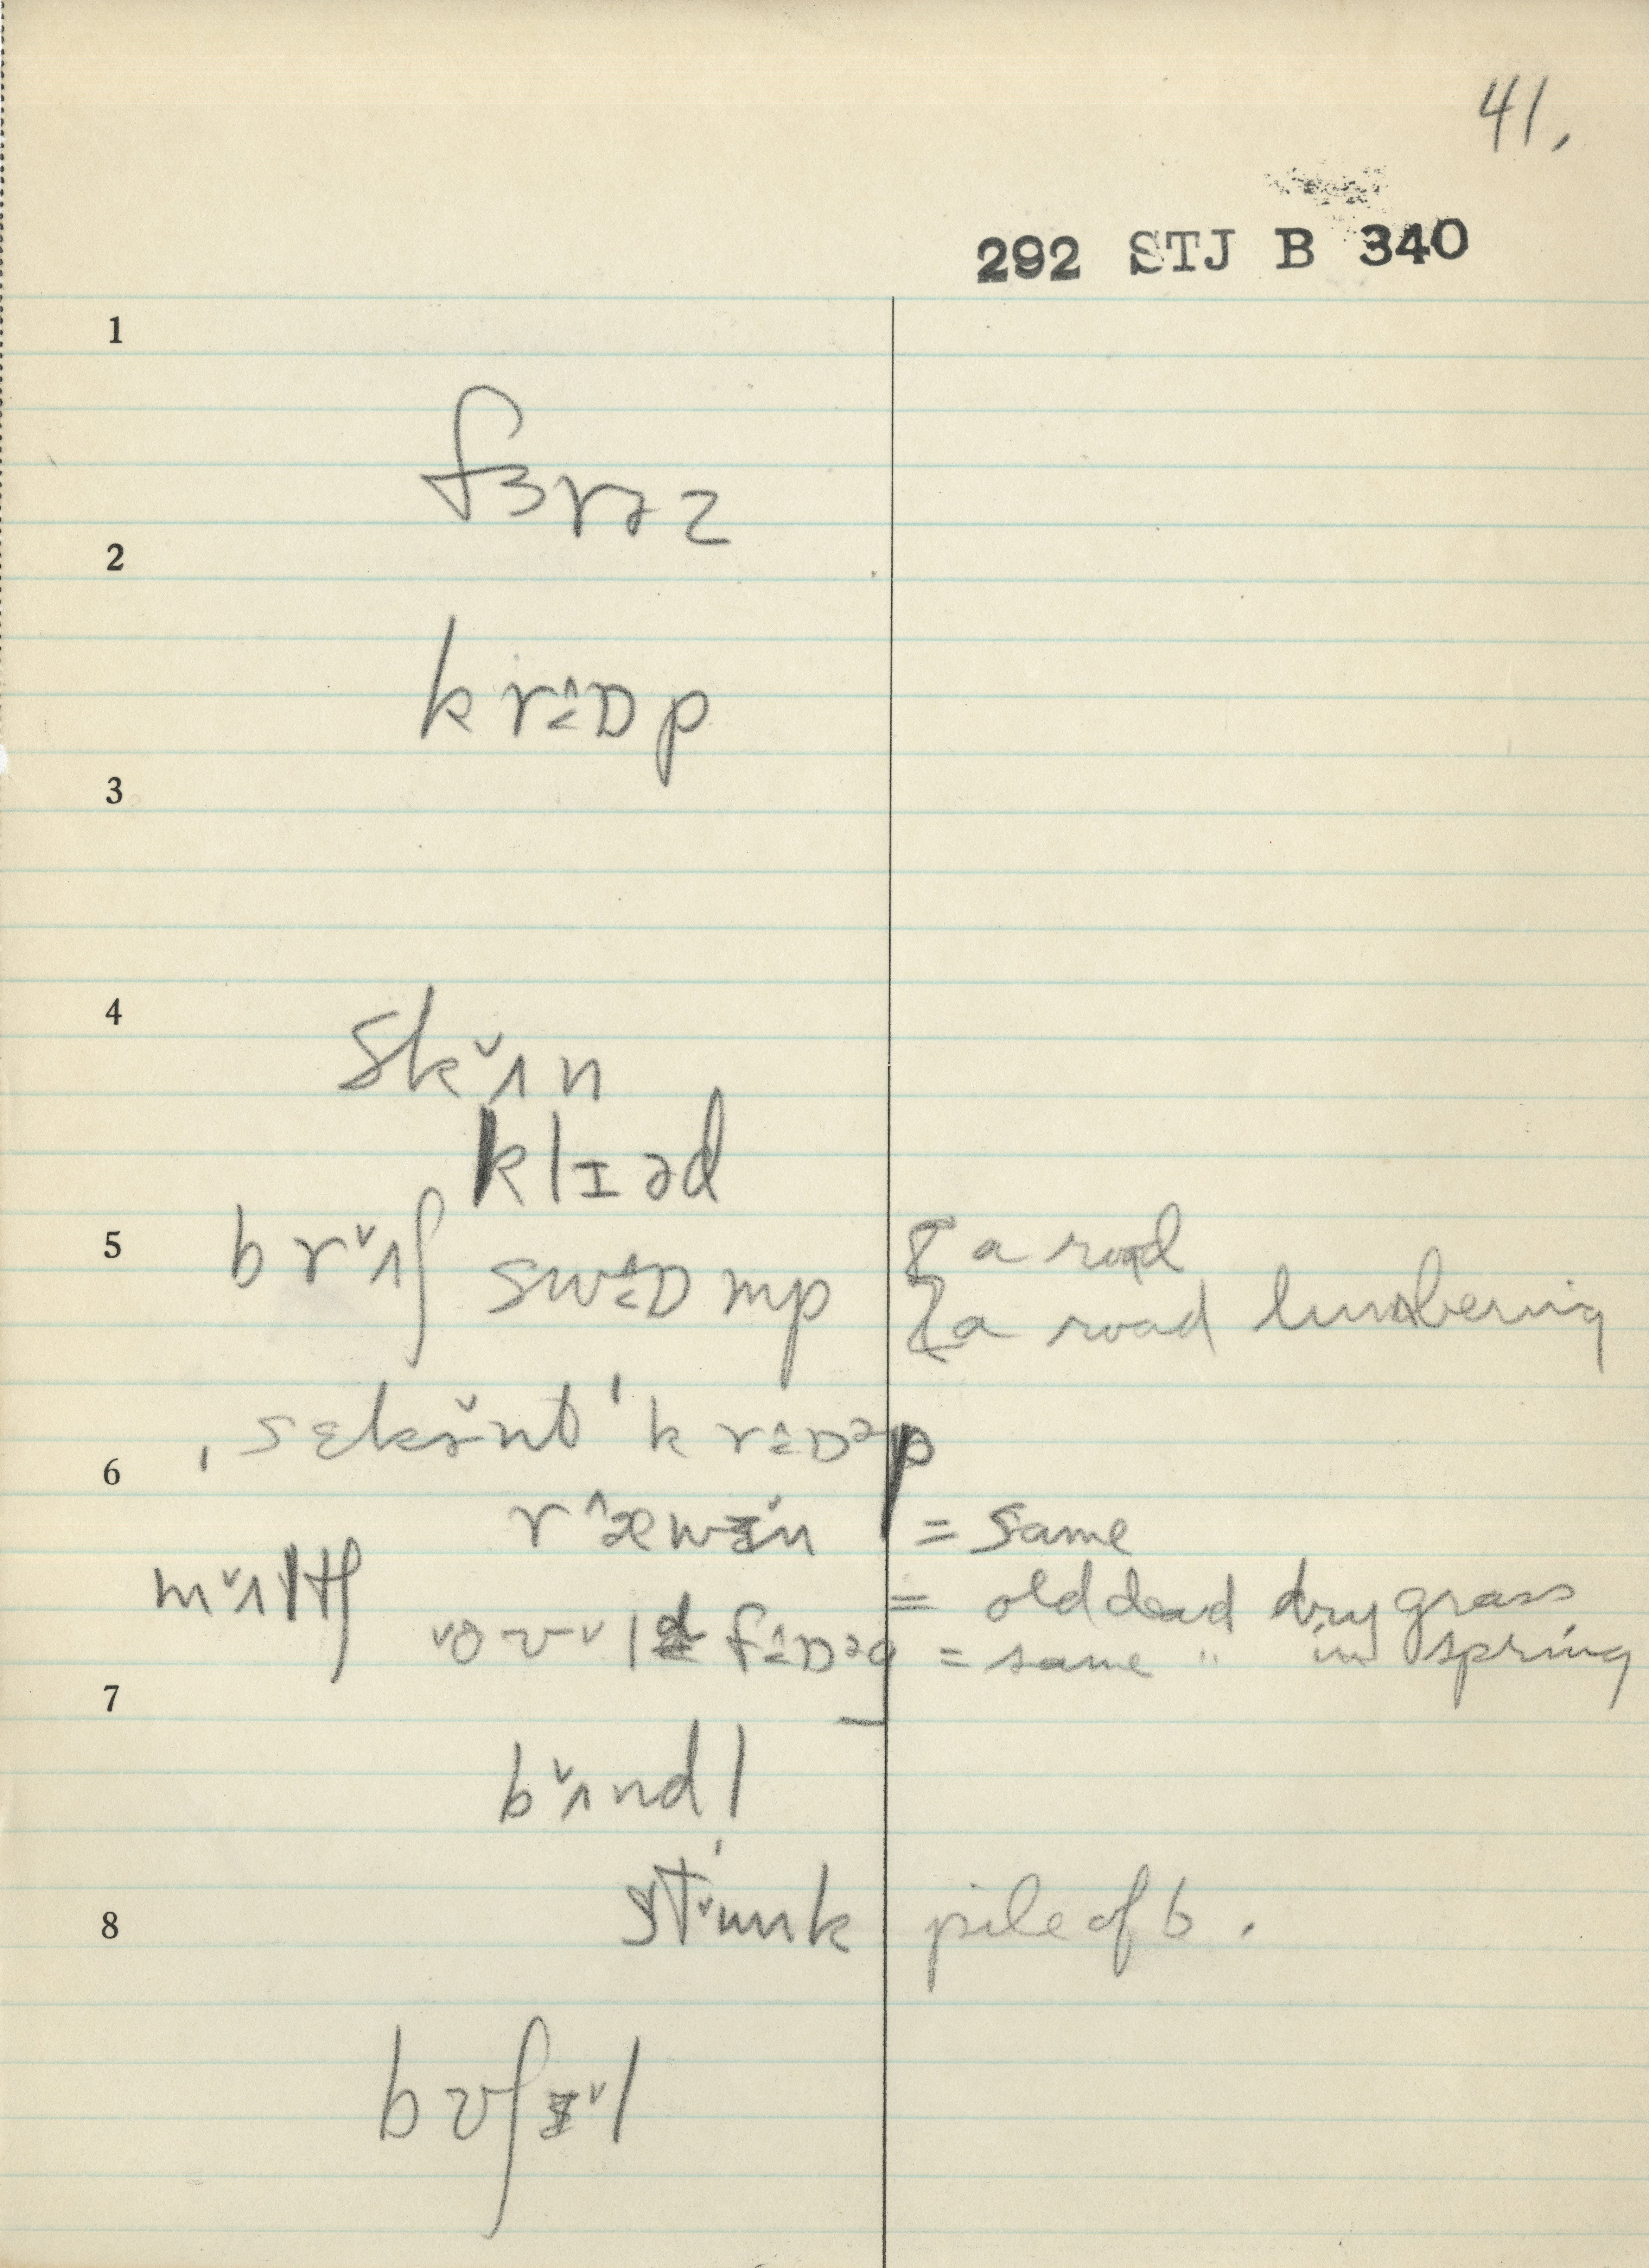 41.
292 STJ B 340
1
fɜrəz
2
k r≙ɒp
3
4
sk̆ʌn
klɪəd
5 br̆ʌʃ sw≙ɒmp { a road
{ a road lumbering
ˌsɛkə̆nt ˈkr≙ɒᵊp
6
r^æwɪ̆n = same
m̆ʌltʃ = old dead dry grass
f≙ɒᵊg = same " in spring
7
b̆ʌndl
8 pile of b.
bʊʃɪ̆l